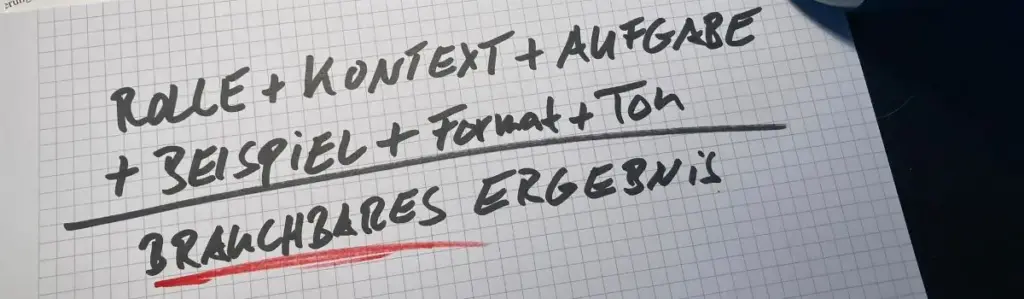 ROLLE + KONTEXT + AUFGABE
+ BEISPiEL + Format + Ton
BRAUCHBARES ERGEBNiS